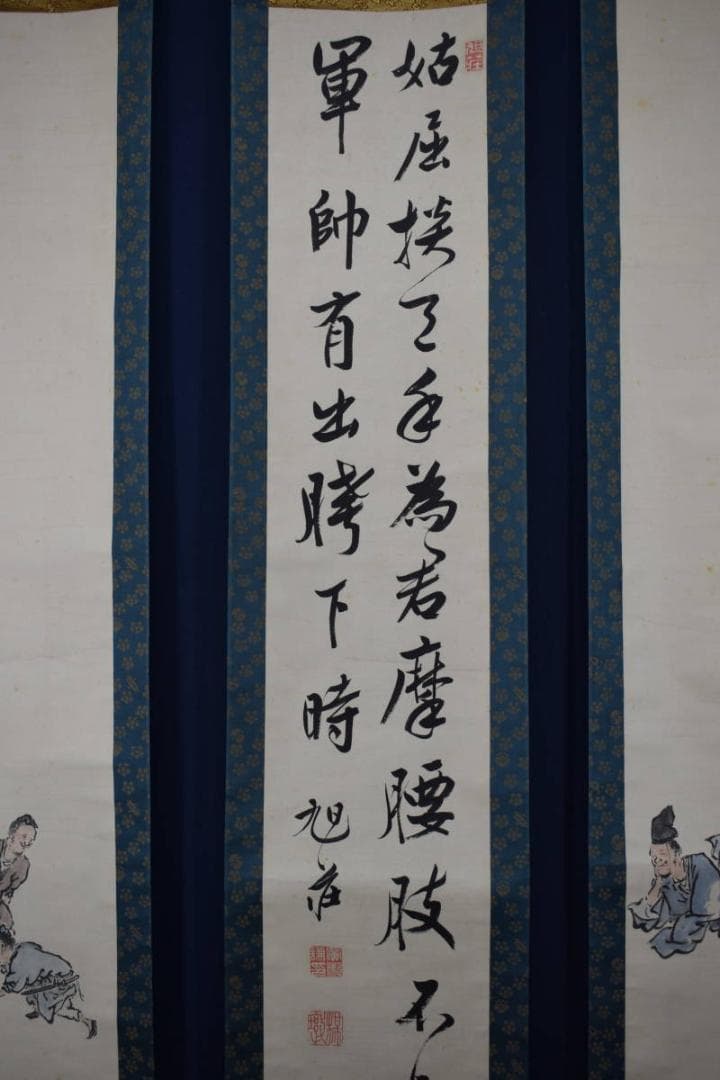 姑屈掞天手為君摩腰肢不
軍帥有出胯下時 旭莊